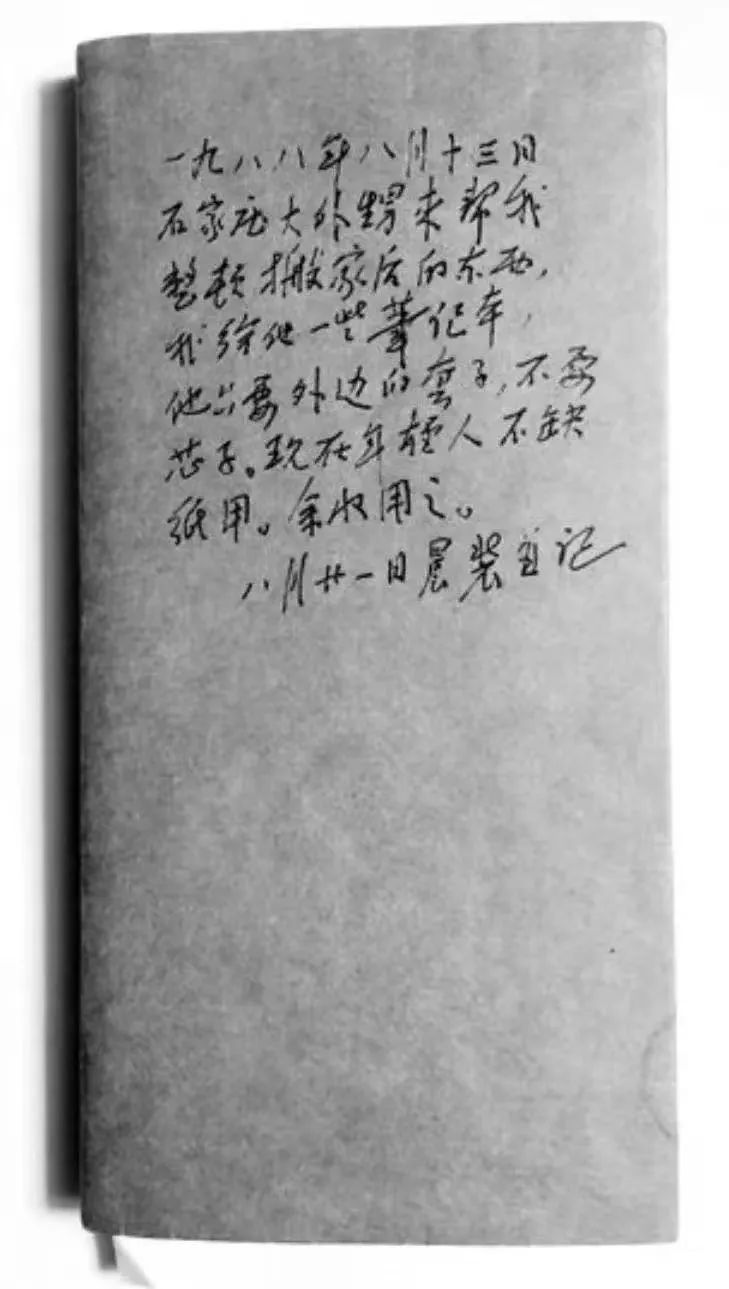 一九八八年八月十三日
石家庄大外甥来帮我
整顿搬家后的东西，
我给他一些笔记本，
他只要外边的套子，不要
芯子。现在年轻人不缺
纸用。余收用之。
八月廿一日晨装并记